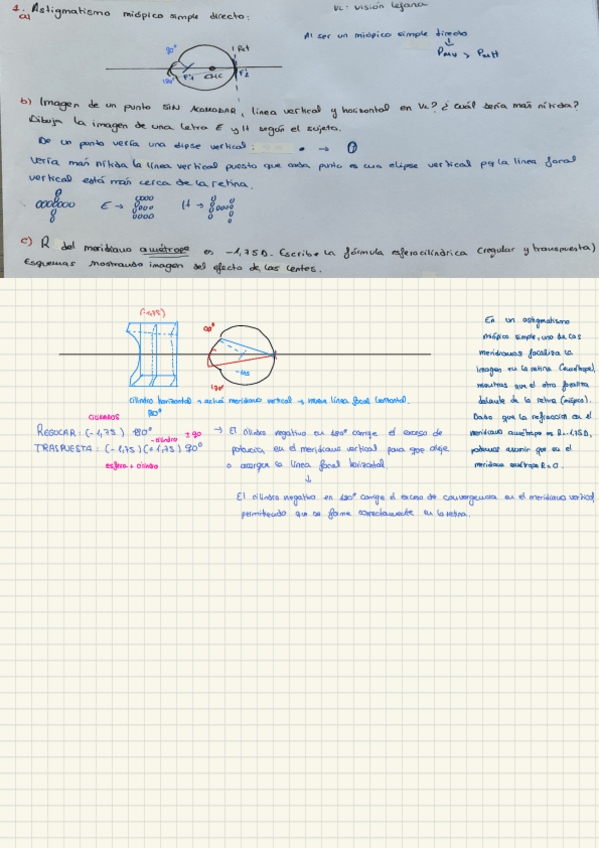 1. Astigmatismo miópico simple directo:
VL: visión lejana
a)
Al ser un miópico simple directo
PMV > PMH
90°
180°
Ret
F'1
CMC
F'2
b) Imagen de un punto SIN ACOMODAR, línea vertical y horizontal en VL? ¿Cuál sería más nítida?
Dibuja la imagen de una letra E y H según el sujeto.
De un punto vería una elipse vertical:
Vería más nítida la línea vertical puesto que cada punto es una elipse vertical pq la línea focal
vertical está más cerca de la retina.
E →
H →
c) R del meridiano amétrope es -1,75 D. Escribe la fórmula esferocilíndrica (regular y transpuesta)
Esquemas mostrando imagen del efecto de las lentes.
(-1,75)
90°
180°
cilindro horizontal → actúa meridiano vertical → mueve línea focal horizontal.
90°
REGULAR: (-1,75) 180°
± 90
-cilindro
TRASPUESTA: (-1,75) (+1,75) 90°
esfera + cilindro
→ El cilindro negativo en 180° corrige el exceso de
potencia en el meridiano vertical para que aleje
o acerque la línea focal horizontal.
↓
El cilindro negativo en 180° corrige el exceso de convergencia en el meridiano vertical,
permitiendo que se forme correctamente en la retina.
En un astigmatismo
miópico simple, uno de los
meridianos focaliza la
imagen en la retina (emétrope),
mientras que el otro focaliza
delante de la retina (miópico).
Dado que la refracción en el
meridiano amétrope es R=-1,75D,
podemos asumir que en el
meridiano emétrope R=0.